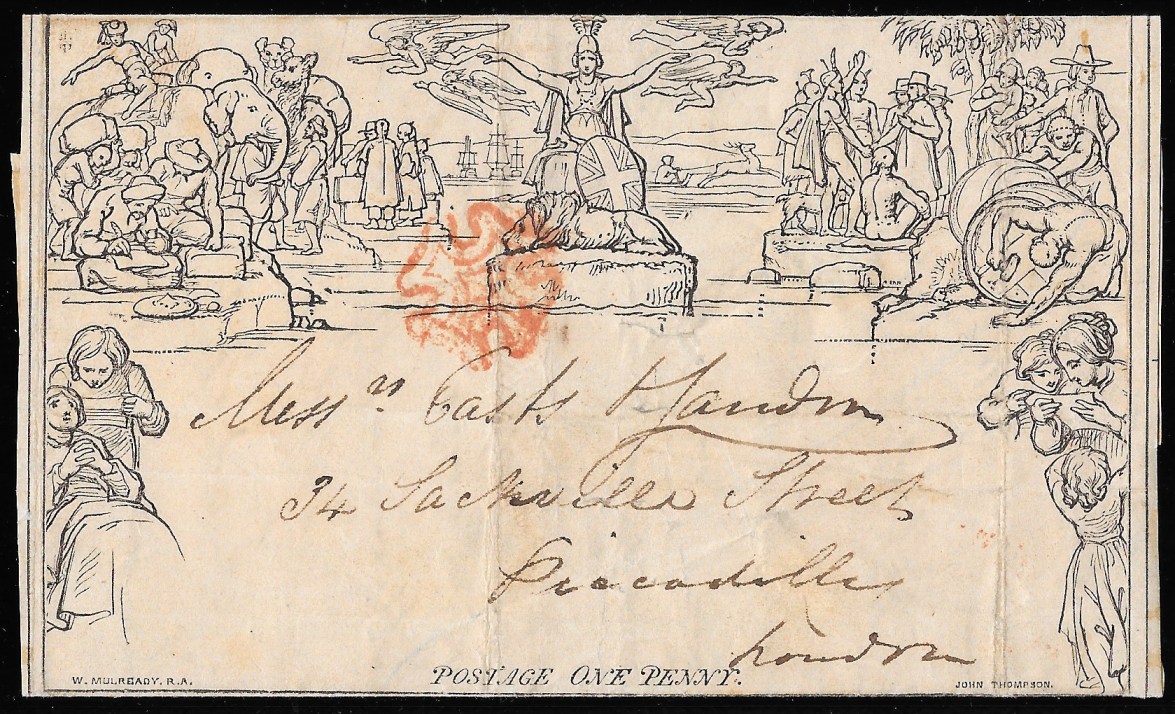 Mess.rs Easts & Landon
34 Sackville Street
Piccadilly
London
POSTAGE ONE PENNY.
W. MULREADY. R.A.
JOHN THOMPSON.